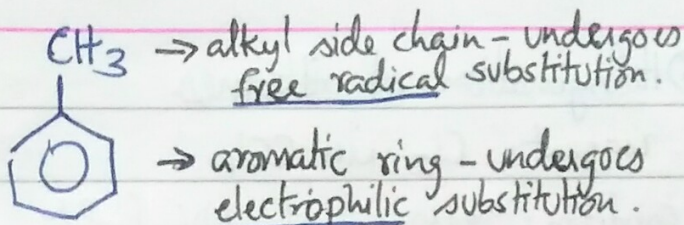 CH3 → alkyl side chain - undergoes
free radical substitution.
→ aromatic ring - undergoes
electrophilic substitution.